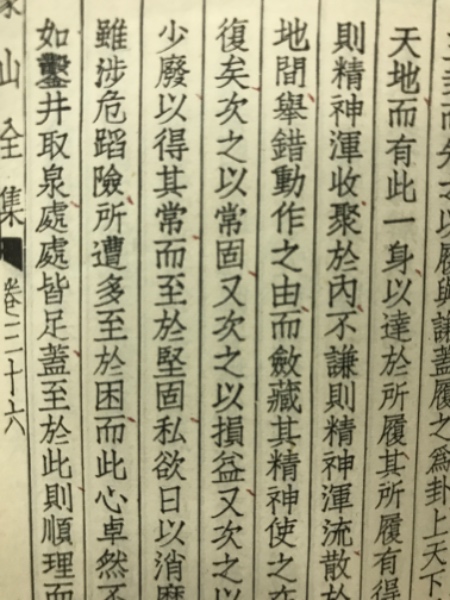 而先之以履與謙蓋履之爲卦上天下
天地而有此一身以達於所履其所履有得
則精神渾收聚於內不謙則精神渾流散於
地間舉錯動作之由而斂藏其精神使之在
復矣次之以常固又次之以損益又次之以
少廢以得其常而至於堅固私欲日以消磨
雖涉危蹈險所遭多至於困而此心卓然不
如鑿井取泉處處皆足蓋至於此則順理而
象山全集 卷三十六